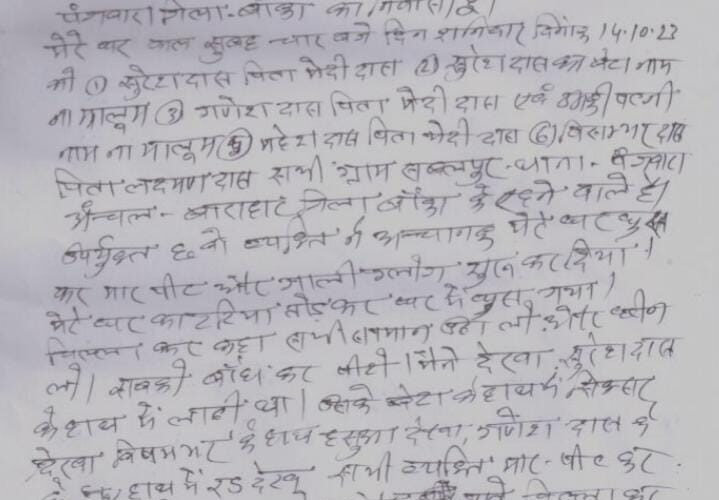 पंजवारा जिला-बाँका का निवासी हूँ।
मेरे घर काल सुबह चार बजे दिन शनिवार दिनांक 14.10.23
को ① सुरेश दास पिता मेदी दास ② सुरेश दास का बेटा नाम
ना मालूम ③ गणेश दास पिता मेदी दास एवं उसकी पत्नी
नाम ना मालूम ⑤ महेश दास पिता मेदी दास ⑥ विसम्भर दास
पिता लक्ष्मण दास सभी ग्राम सबलपुर-थाना-पंजवारा
अंन्चल-बाराहाट जिला बाँका के रहने वाले हैं।
उपर्युक्त छः वो व्यक्ति ने अन्चानक मेरे घर घुस
कर मार पीट और गाली गलोग सुरू कर दिया।
मेरे घर का टटिया तोड़ कर घर में घुस गया।
चिल्ला कर कहा सभी समान उठा लो और छीन
लो। सबको बाँध कर पीटो। मैंने देखा सुरेश दास
के हाथ में लाठी था। उसके बेटा के हाथ में
देखा विषमभर के हाथ हसुआ देखा, गणेश दास के
हाथ में रड देखा सभी व्यक्ति मार-पीट कर